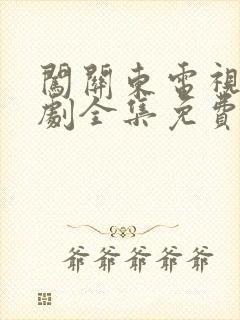 闖關東電視
劇全集免費
爺爺爺爺爺